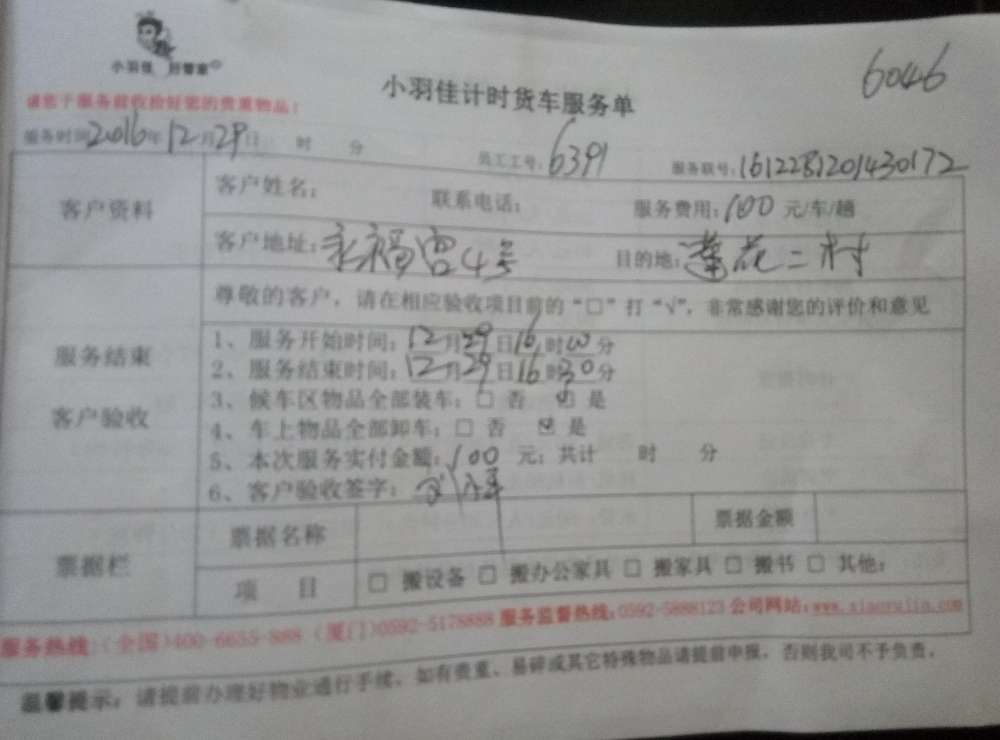 小羽佳 好管家
6046
小羽佳计时货车服务单
请您于服务前收拾好您的贵重物品！
服务时间2016年12月29日 时 分 员工工号：6391 服务联号：1612281201430172
客户资料
客户姓名： 联系电话： 服务费用：100 元/车/趟
客户地址：永福宫4号 目的地：莲花二村
服务结束
客户验收
尊敬的客户，请在相应验收项目前的“□”打“√”，非常感谢您的评价和意见
1、服务开始时间：12月29日16时00分
2、服务结束时间：12月29日16时30分
3、候车区物品全部装车：□ 否 ☑ 是
4、车上物品全部卸车：□ 否 ☑ 是
5、本次服务实付金额：100 元；共计 时 分
6、客户验收签字：
票据栏
票据名称 票据金额
项 目 □ 搬设备 □ 搬办公家具 □ 搬家具 □ 搬书 □ 其他：
服务热线：（全国）400-6655-888（厦门）0592-5178888 服务监督热线：0592-5888123 公司网站：www.xiaoyujia.com
温馨提示：请提前办理好物业通行手续，如有贵重、易碎或其它特殊物品请提前申报，否则我司不予负责。